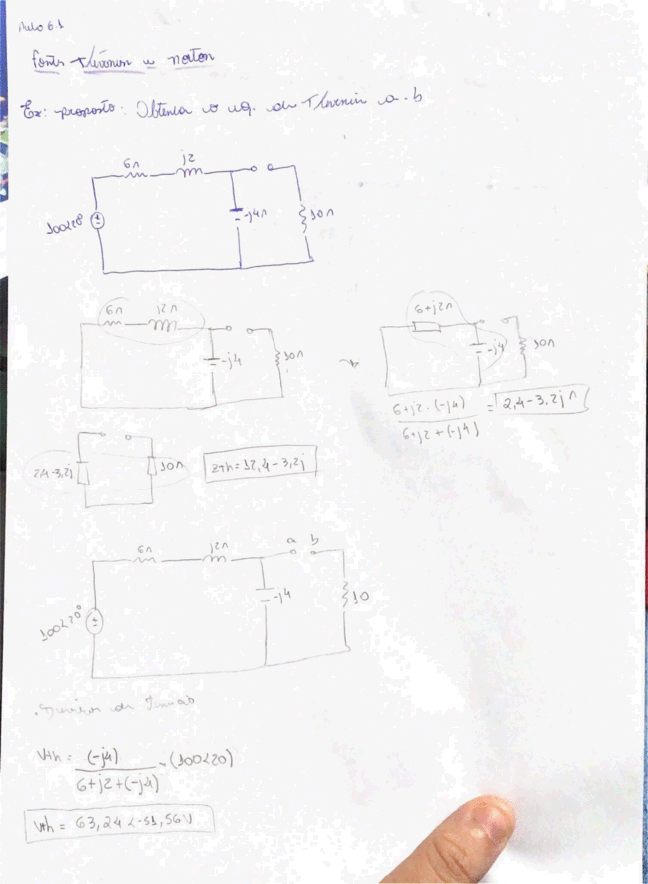 Aula 6.1
fontes Thévenin e norton
Ex: proposto: Obtenha o eq. de Thevenin a.b
6Ω j2
100∠20° -j4Ω 10Ω
6Ω j2Ω 6+j2Ω
-j4 10Ω -j4 10Ω
6+j2 . (-j4) = 2,4-3,2j Ω
6+j2+(-j4)
2,4-3,2j 10Ω Zth=12,4-3,2j
6Ω j2Ω a b
100∠20° -j4 10
. Divisor de Tensão
Vth = (-j4) . (100∠20)
6+j2+(-j4)
Vth = 63,24∠-51,56V